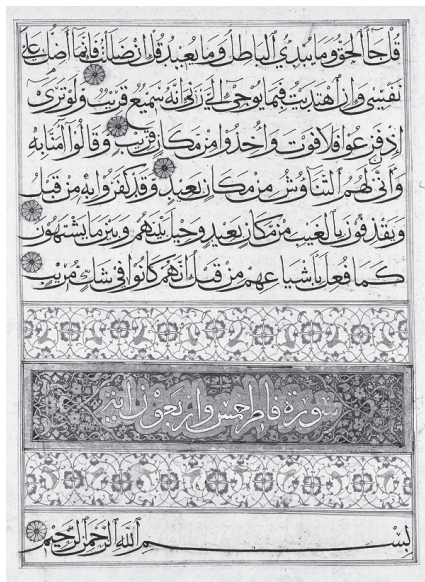 قُلْ جَاءَ الْحَقُّ وَمَا يُبْدِئُ الْبَاطِلُ وَمَا يُعِيدُ قُلْ اِنْ ضَلَلْتُ فَاِنَّمَا اَضِلُّ عَلٰى
نَفْسِي وَاِنِ اهْتَدَيْتُ فَبِمَا يُوحِي اِلَيَّ رَبِّي اِنَّهُ سَمِيعٌ قَرِيبٌ وَلَوْ تَرٰى
اِذْ فَزِعُوا فَلَا فَوْتَ وَاُخِذُوا مِنْ مَكَانٍ قَرِيبٍ وَقَالُوا آمَنَّا بِهِ
وَاَنّٰى لَهُمُ التَّنَاوُشُ مِنْ مَكَانٍ بَعِيدٍ وَقَدْ كَفَرُوا بِهِ مِنْ قَبْلُ
وَيَقْذِفُونَ بِالْغَيْبِ مِنْ مَكَانٍ بَعِيدٍ وَحِيلَ بَيْنَهُمْ وَبَيْنَ مَا يَشْتَهُونَ
كَمَا فُعِلَ بِاَشْيَاعِهِمْ مِنْ قَبْلُ اِنَّهُمْ كَانُوا فِي شَكٍّ مُرِيبٍ
سورة فاطر خمس واربعون اية
بِسْمِ اللّٰهِ الرَّحْمٰنِ الرَّحِيمِ